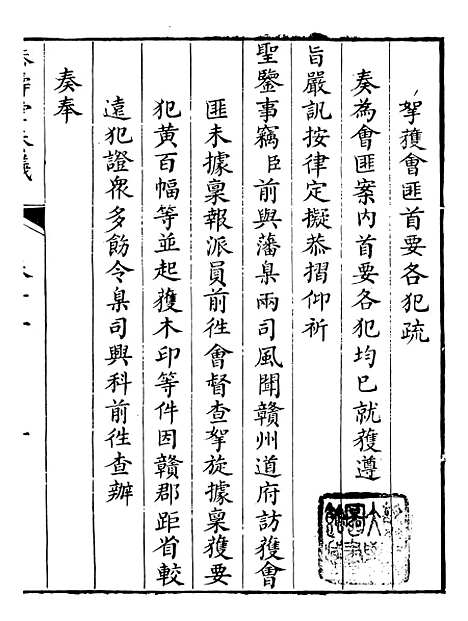 拏獲會匪首要各犯疏
奏為會匪案內首要各犯均已就獲遵
旨嚴訊按律定擬恭摺仰祈
聖鑒事竊臣前與藩臬兩司風聞贛州道府訪獲會
匪未據稟報派員前徃會督查拏旋據稟獲要
犯黃百幅等並起獲木印等件因贛郡距省較
遠犯證衆多飭令臬司興科前徃查辦
奏奉